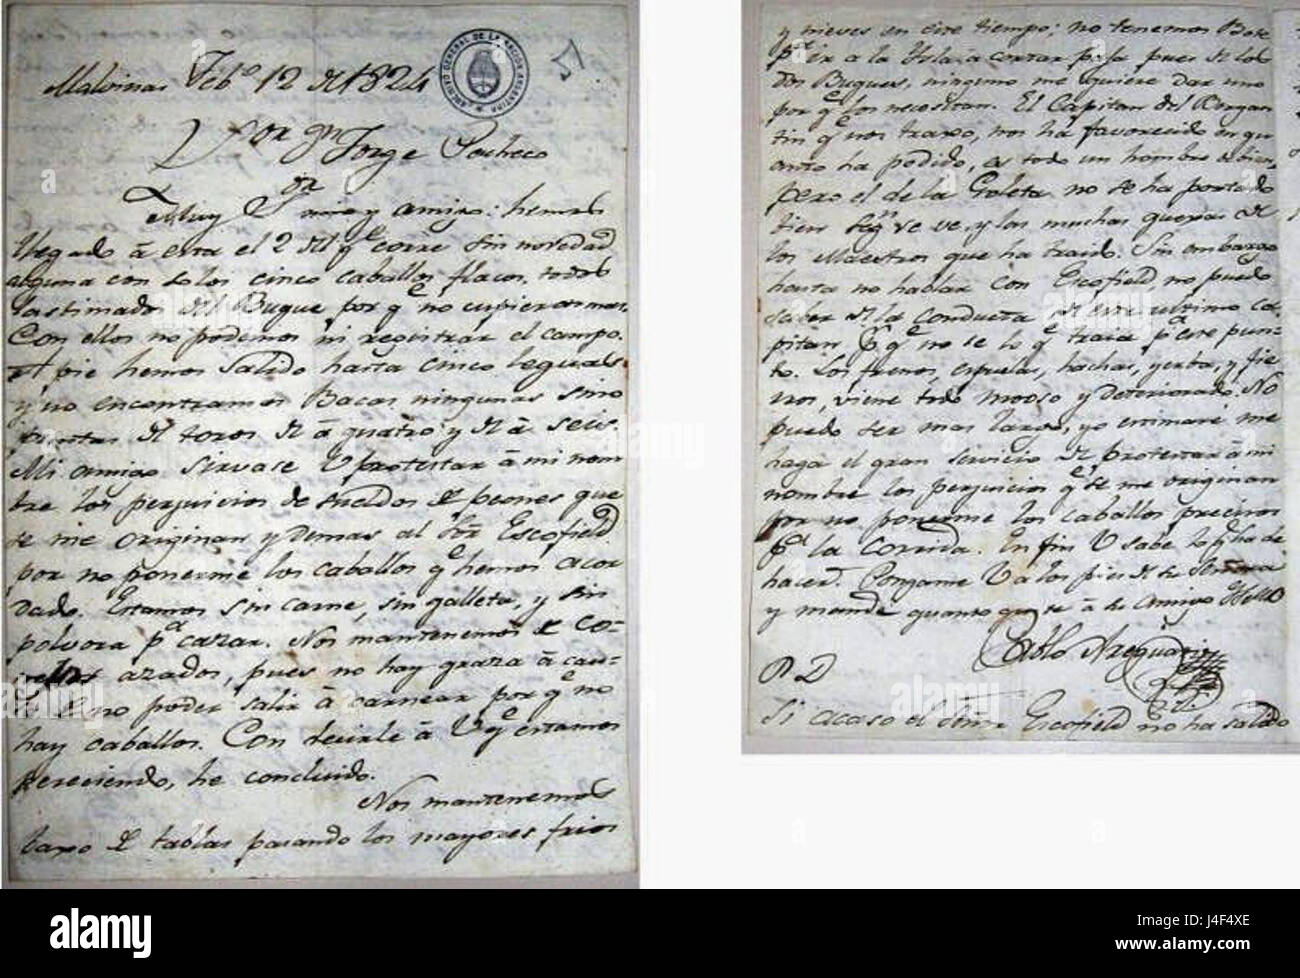 Malvinas Febº 12 de 1824
ARCHIVO GENERAL DE LA NACION ARGENTINA
Sor Dn Jorge Pacheco
Muy Sor mio y amigo: hemos
llegado à esta el 2 del qe corre sin novedad
alguna con solos cinco caballos flacos, todos
lastimados del Buque por qe no cupieron mas.
Con ellos no podemos ni registrar el campo.
A pie hemos salido hasta cinco leguas
y no encontramos Bacas ningunas sino
puntas de toros de à quatro y de à seis.
Mi amigo sirvase V protestar à mi nom
bre los perjuicios de sueldos de peones que
se me originan y demas al Sor Escofield
por no ponerme los caballos qe hemos acor
dado. Estamos sin carne, sin galleta, y sin
polvora pa cazar. Nos mantenemos de co-
azados, pues no hay graza à cau-
de no poder salir à carnear por qe no
hay caballos. Con decirle à V qe estamos
pereciendo, he concluido.
Nos mantenemos
baxo de tablas pasando los mayores frios
y nieves en este tiempo; no tenemos Bote
pa ir a la Ysla à cortar paja pues de los
dos Buques, ninguno me quiere dar uno
por qe los necesitan. El Capitan del Bergan
tin qe nos traxo, nos ha favorecido en qu
anto ha podido, es todo un hombre de bien,
pero el de la Goleta no se ha portado
bien segn se ve, y los muchas quexas de
los Maestros que ha traido. Sin embargo
hasta no hablar con Escofield, no puedo
saber de la conducta de este ultimo ca-
pitan p qe no se lo qe trara pa este pun-
to. Los frenos, espuelas, hachas, yerba, y fie
rros, viene todo mooso y deteriorado. No
puedo ser mas largo, yo estimaré me
haga el gran servicio de protestar à mi
nombre los perjuicios qe se me originan
por no ponerme los caballos precisos
pa la corrida. En fin V sabe lo qe ha de
hacer. Pongame V a los pies de su Señora
y mande quanto guste à su amigo
Pablo Areguati
P. D
Si acaso el Señor Escofield no ha salido
alamy
alamy
alamy
alamy
a
a
Image ID: J4F4XE
www.alamy.com